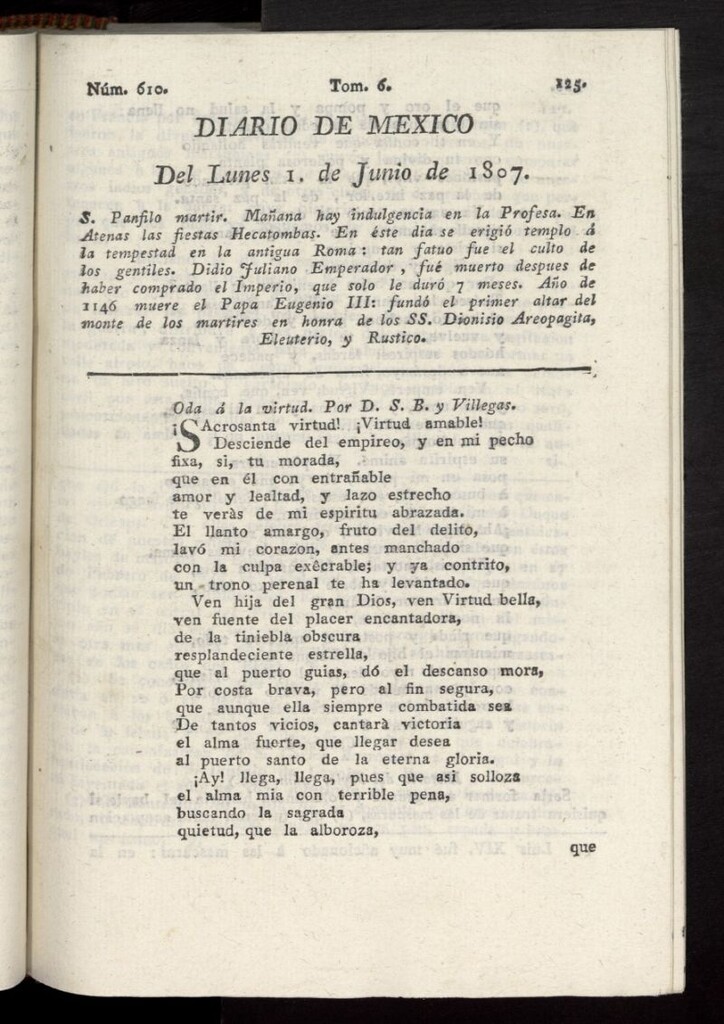 Núm. 610. Tom. 6. 125.
DIARIO DE MEXICO
Del Lunes 1. de Junio de 1807.
S. Panfilo martir. Mañana hay indulgencia en la Profesa. En
Atenas las fiestas Hecatombas. En éste dia se erigió templo á
la tempestad en la antigua Roma: tan fatuo fue el culto de
los gentiles. Didio Juliano Emperador, fué muerto despues de
haber comprado el Imperio, que solo le duró 7 meses. Año de
1146 muere el Papa Eugenio III: fundó el primer altar del
monte de los martires en honra de los SS. Dionisio Areopagita,
Eleuterio, y Rustico.
Oda á la virtud. Por D. S. B. y Villegas.
¡SAcrosanta virtud! ¡Virtud amable!
Desciende del empireo, y en mi pecho
fixa, si, tu morada,
que en él con entrañable
amor y lealtad, y lazo estrecho
te veràs de mi espiritu abrazada.
El llanto amargo, fruto del delito,
lavó mi corazon, antes manchado
con la culpa exêcrable; y ya contrito,
un trono perenal te ha levantado.
Ven hija del gran Dios, ven Virtud bella,
ven fuente del placer encantadora,
de la tiniebla obscura
resplandeciente estrella,
que al puerto guias, dó el descanso mora,
Por costa brava, pero al fin segura,
que aunque ella siempre combatida sea
De tantos vicios, cantarà victoria
el alma fuerte, que llegar desea
al puerto santo de la eterna gloria.
¡Ay! llega, llega, pues que asi solloza
el alma mia con terrible pena,
buscando la sagrada
quietud, que la alboroza,
que